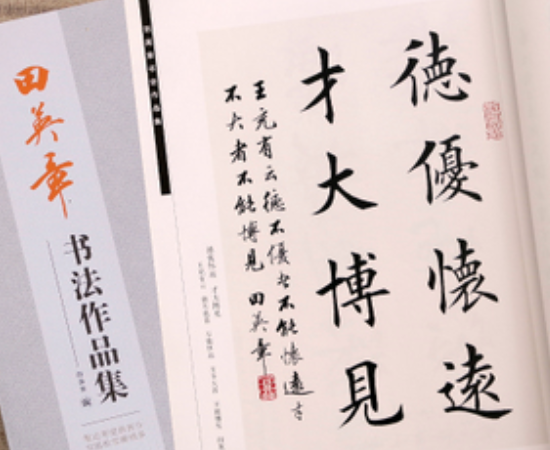 田英章
书法作品集
德優懷遠
才大博見
王充有云德不優者不能懷遠才
不大者不能博見 田英章